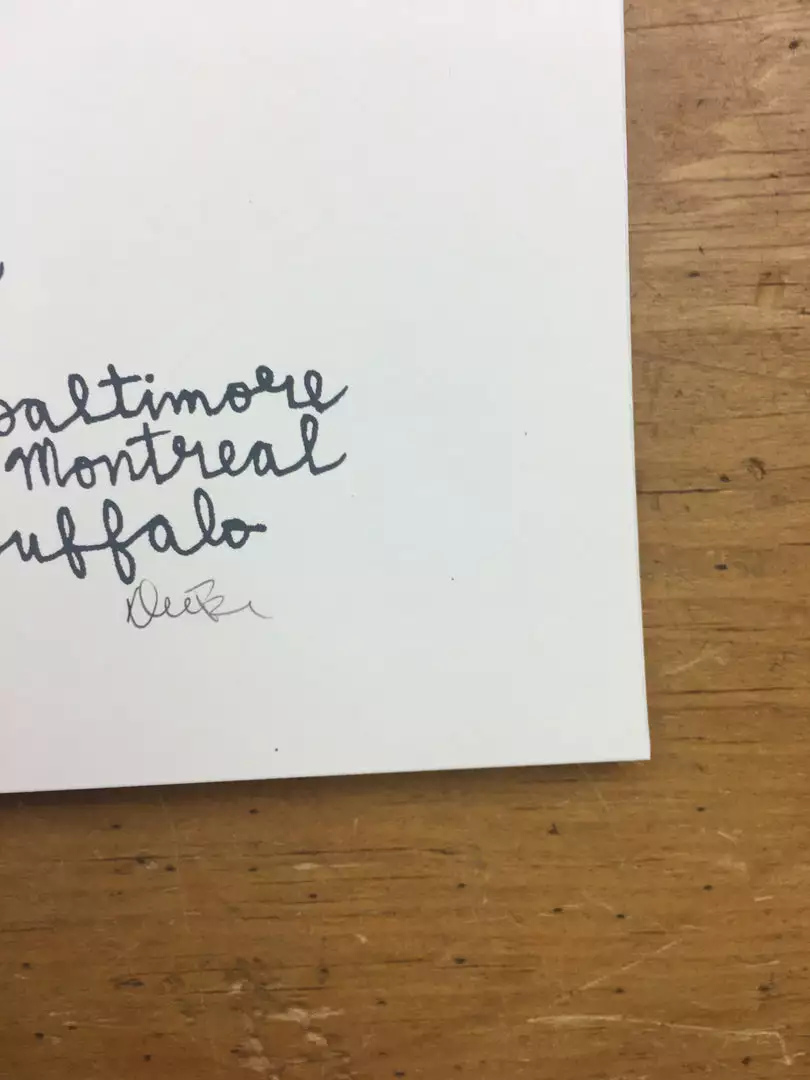 Baltimore
Montreal
Buffalo